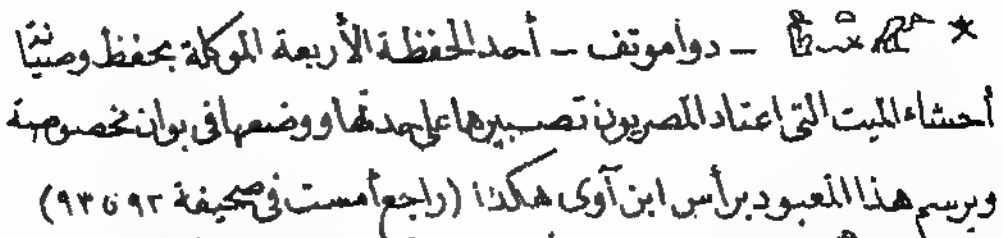 ★ 𓇼𓅐𓏏𓆑 – دواموتف – أحد الحفظة الأربعة الموكلة بحفظ وصيانة
أحشاء الميت التى اعتاد المصريون تصبيرها على حدتها ووضعها فى بوان مخصوصة
ويرسم هذا المعبود برأس ابن آوى هكذا (راجع أمست فى صحيفة ٩٢ و ٩٣)